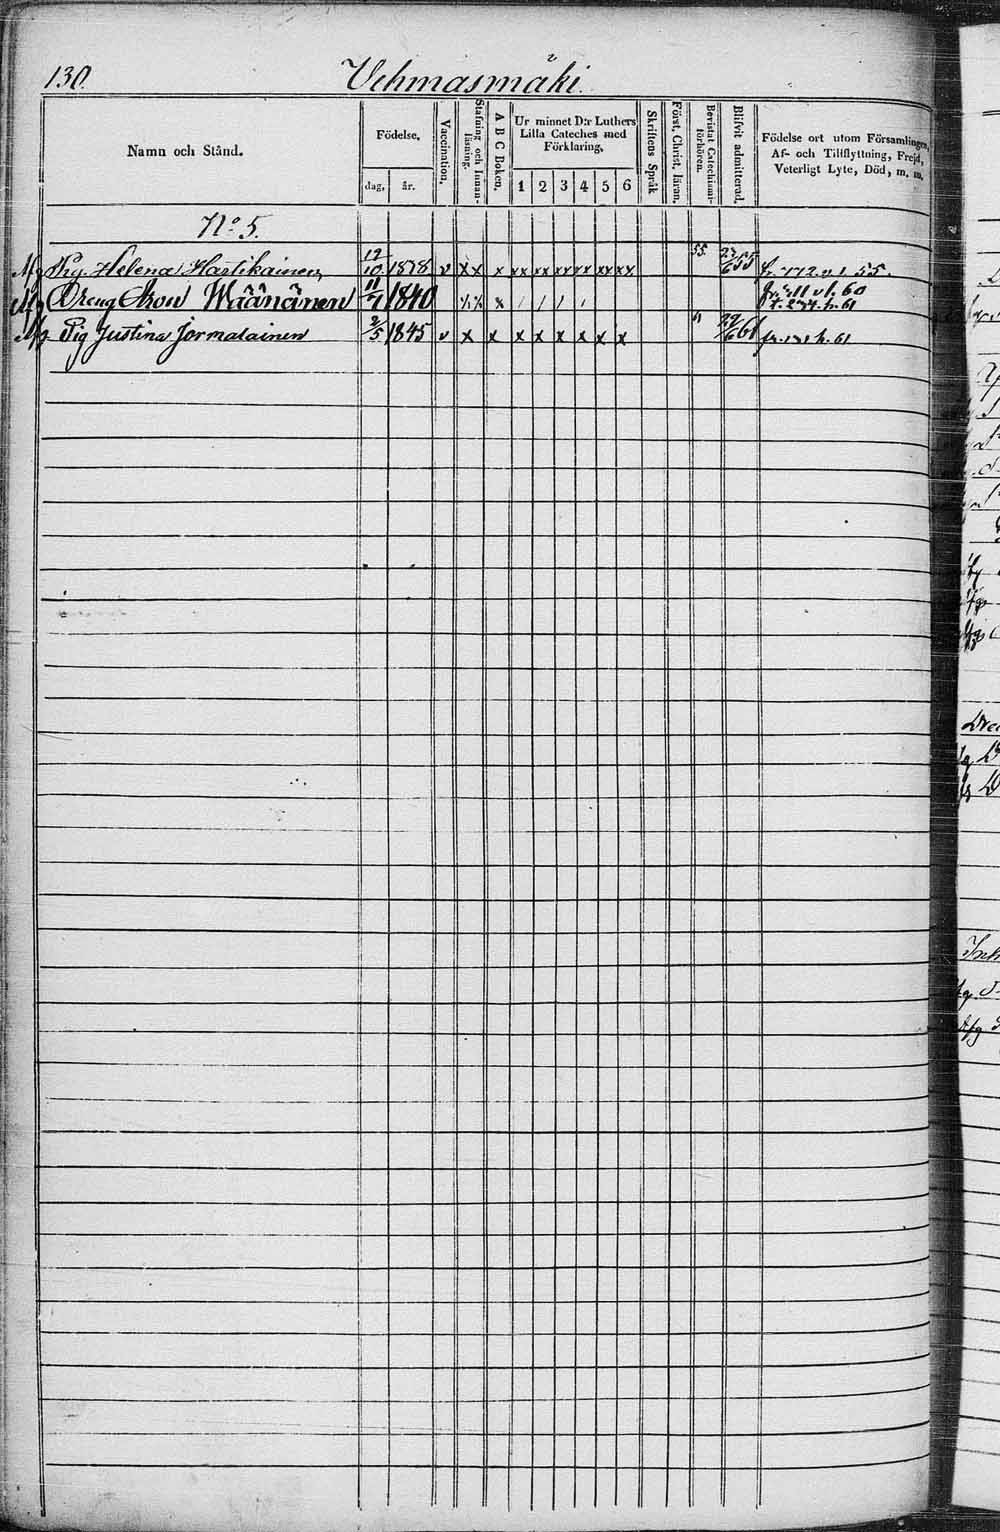 130. Vehmasmäki.
Namn och Stånd.
Födelse.
dag. år.
Vaccination.
Stafning och Innanläsning.
A B C Boken.
Ur minnet D:r Luthers
Lilla Cateches med
Förklaring.
1 2 3 4 5 6
Skriftens Språk
Först. Christ. läran.
Bevistat Catechismiförhören.
Blifvit admitterad.
Födelse ort utom Församlingen,
Af- och Tillflyttning, Frejd,
Veterligt Lyte, Död, m. m.
No 5.
Pig. Helena Hartikainen 12/10 v x x x xx xx xx xx xx xx 55. 55 fr. 172. v. l. 55.
Dreng Aron Wäänänen 11/1 1840 x / / / / v l. 60
h. 61
Pig Justina Jormalainen 2/5 1845 v x x x x x x x x 61 fr. h. 61